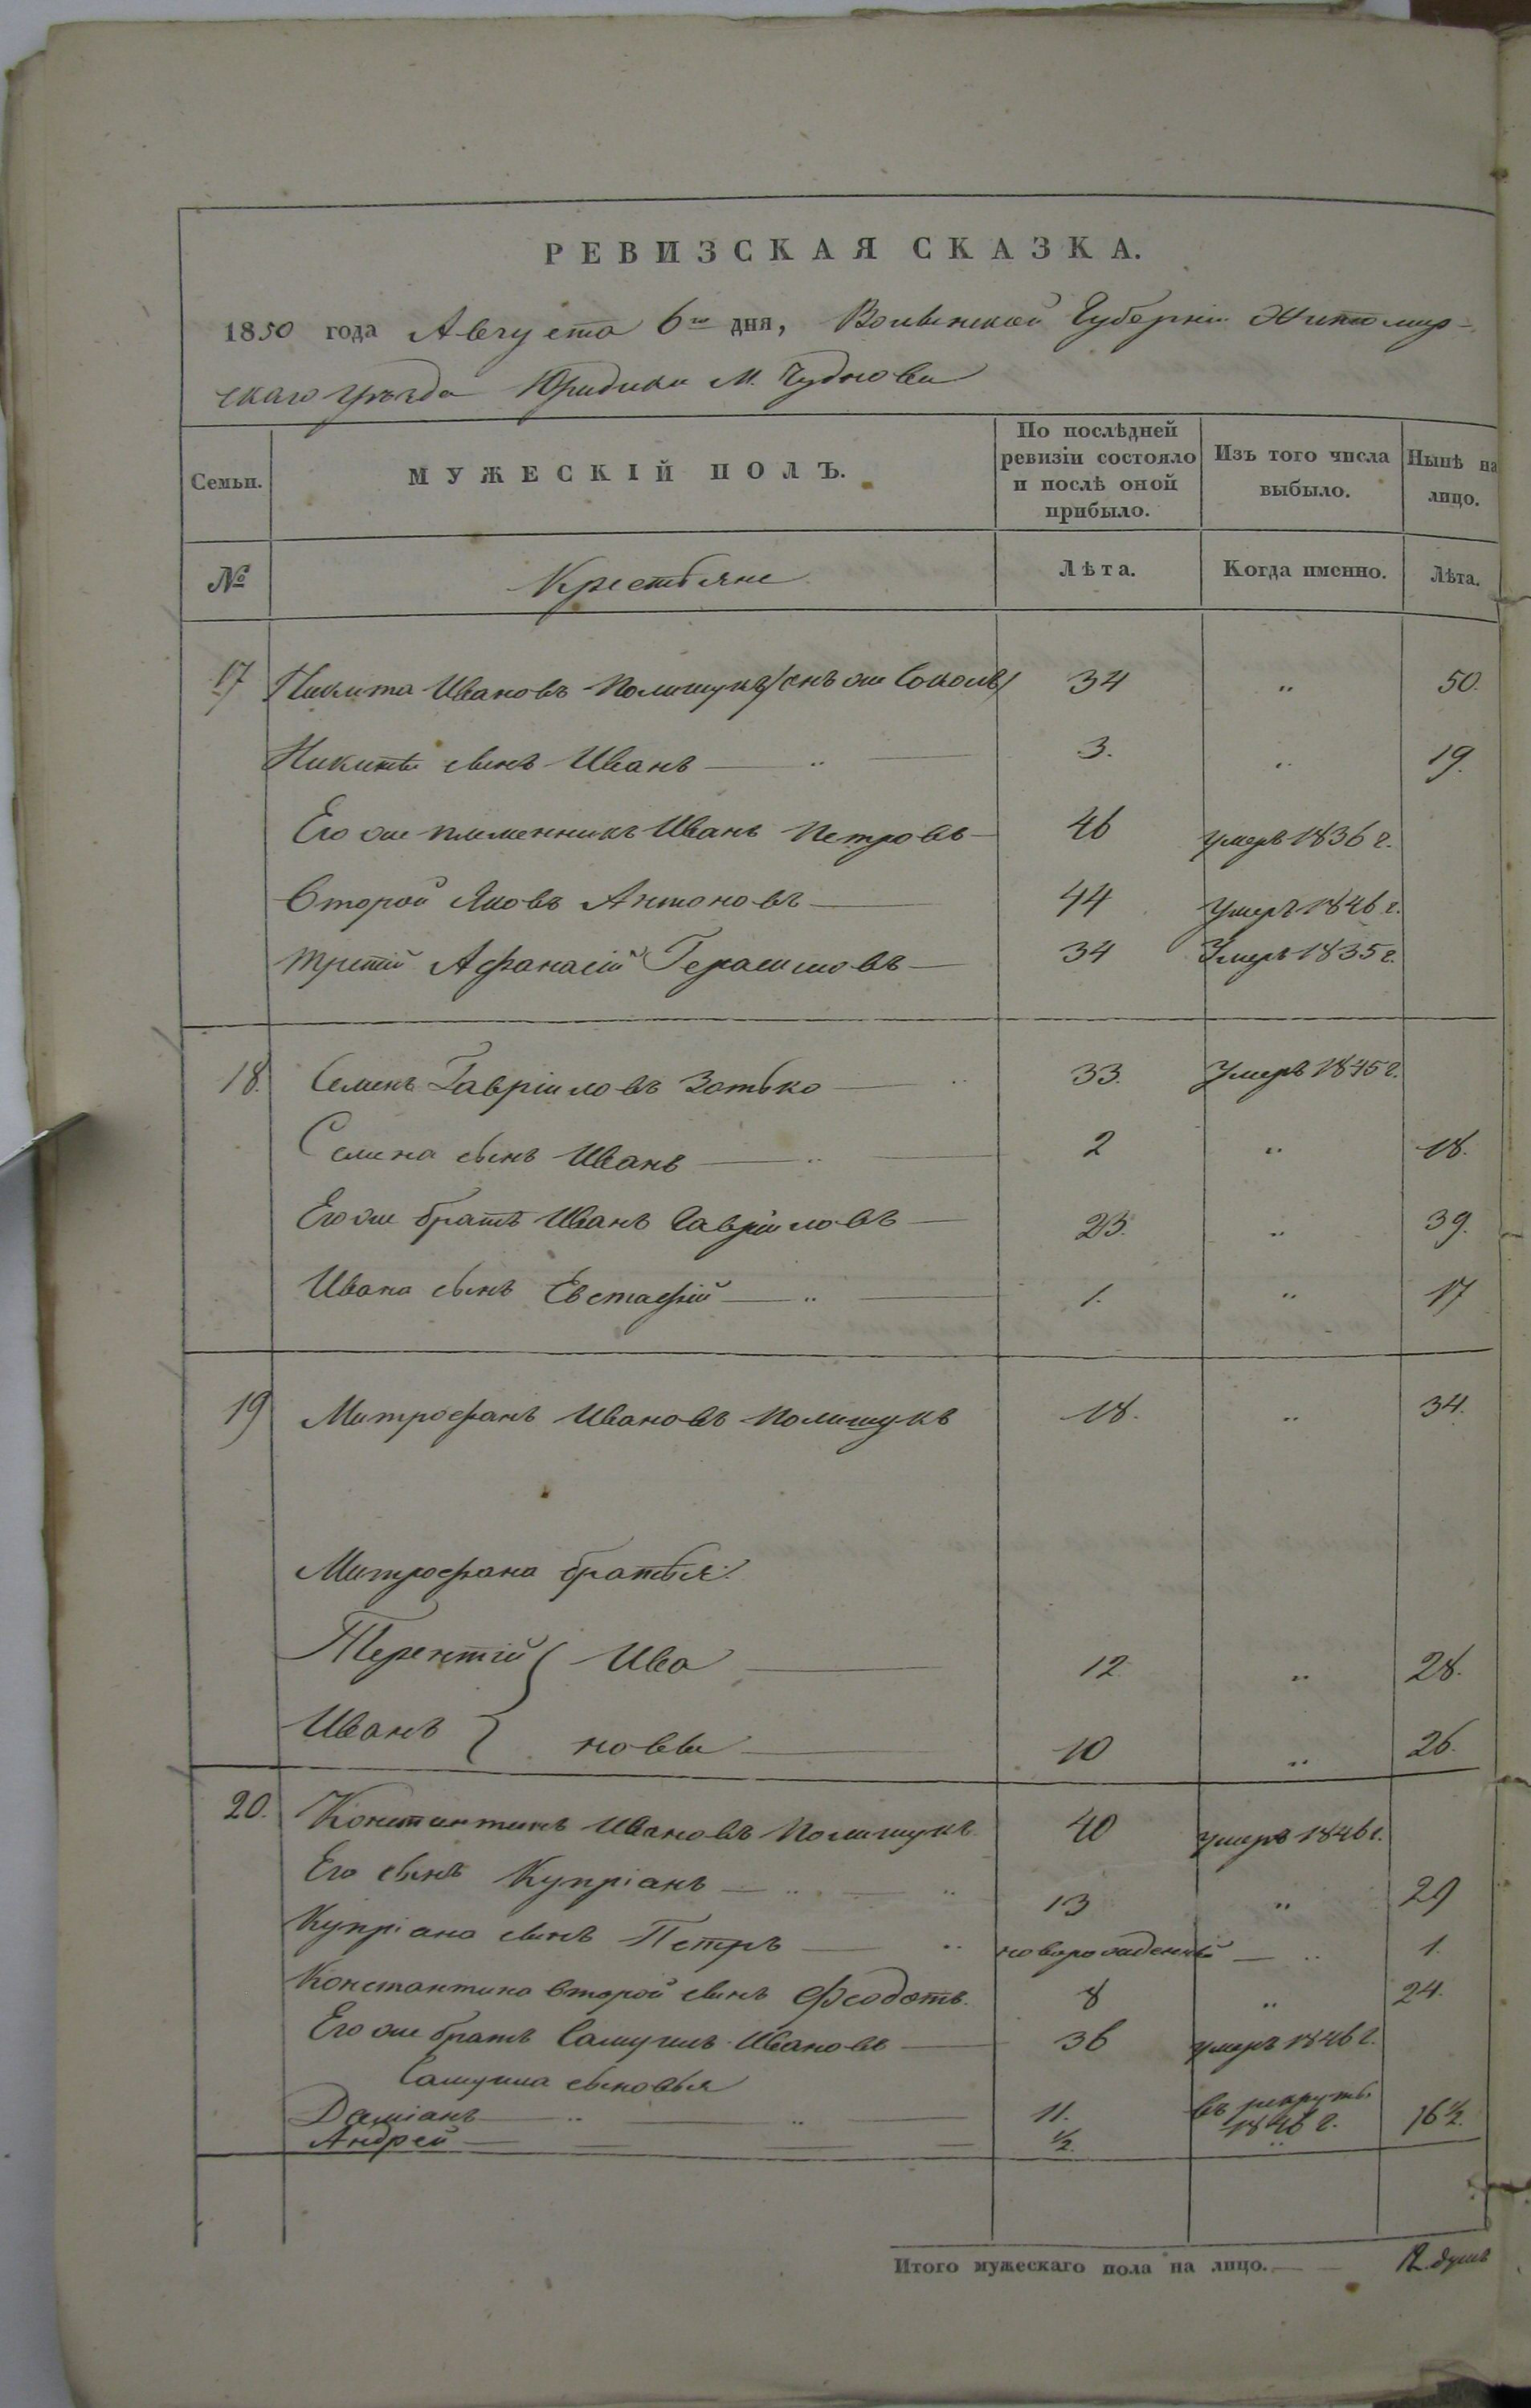 РЕВИЗСКАЯ СКАЗКА.
1850 года Августа 6го дня, Волынской Губерніи Житомир-
скаго уѣзда Юридики М. Чуднова
Семьи. МУЖЕСКІЙ ПОЛЪ. По послѣдней ревизіи состояло и послѣ оной прибыло. Изъ того числа выбыло. Нынѣ на лицо.
№ Крестьяне Лѣта. Когда именно. Лѣта.
17 Никита Ивановъ Полищукъ /онъ же Соколъ/ 34 „ 50.
Никиты сынъ Иванъ — „ — 3. „ 19.
Его же племенникъ Иванъ Петровъ — 46 умеръ 1836 г.
Второй Яковъ Антоновъ — 44 Умеръ 1846 г.
Третій Афанасій Герасимовъ — 34 Умеръ 1835 г.
18. Семенъ Гавріиловъ Зотько — „ 33. Умеръ 1845 г.
Семена сынъ Иванъ — „ — 2 „ 18.
Его же братъ Иванъ Гавріиловъ — 23. „ 39.
Ивана сынъ Евстафій — „ — 1. „ 17
19 Митрофанъ Ивановъ Полищукъ 18. „ 34.
Митрофана братья:
Терентій } Ива — 12 „ 28.
Иванъ } новы — 10 „ 26.
20. Константинъ Ивановъ Полищукъ 40 умеръ 1846 г.
Его сынъ Купріанъ — „ — „ 13 „ 29
Купріана сынъ Петръ — „ новорожденный — „ 1.
Константина второй сынъ Феодотъ. 8 „ 24.
Его же братъ Самуилъ Ивановъ — 36 умеръ 1846 г.
Самуила сыновья
Даміанъ — „ — „ — 11. въ рекруты 1846 г.
Андрей — — — — ½. „ 16½.
Итого мужескаго пола на лицо. — — 12. душъ